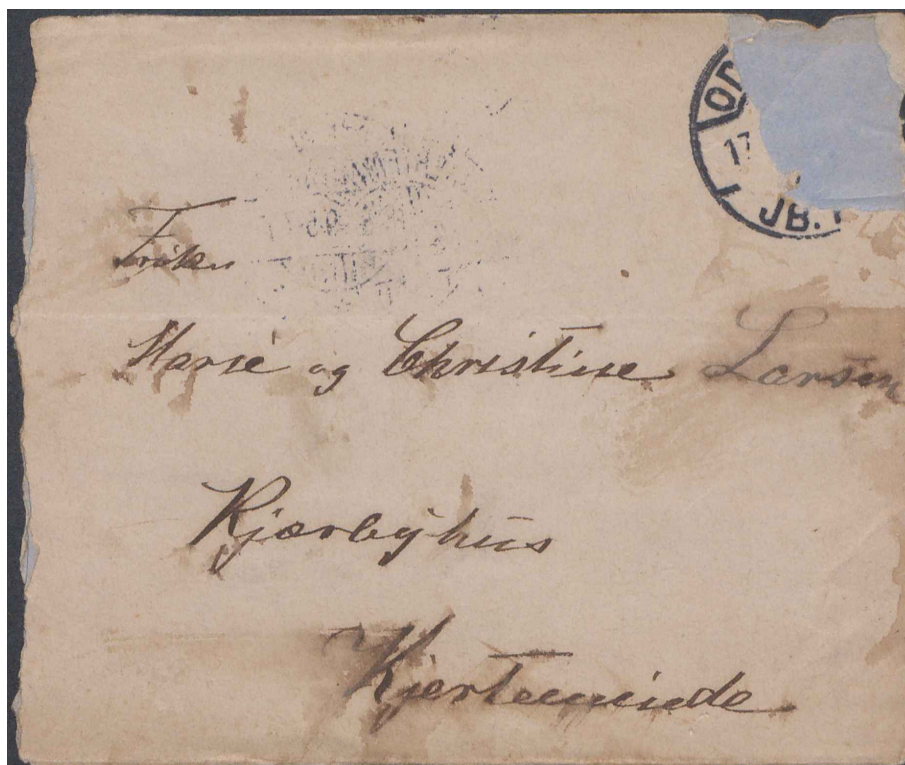 OD
17
JB.
Frøken
Marie og Christine Larsen
Kjærbyhus
Kjerteminde